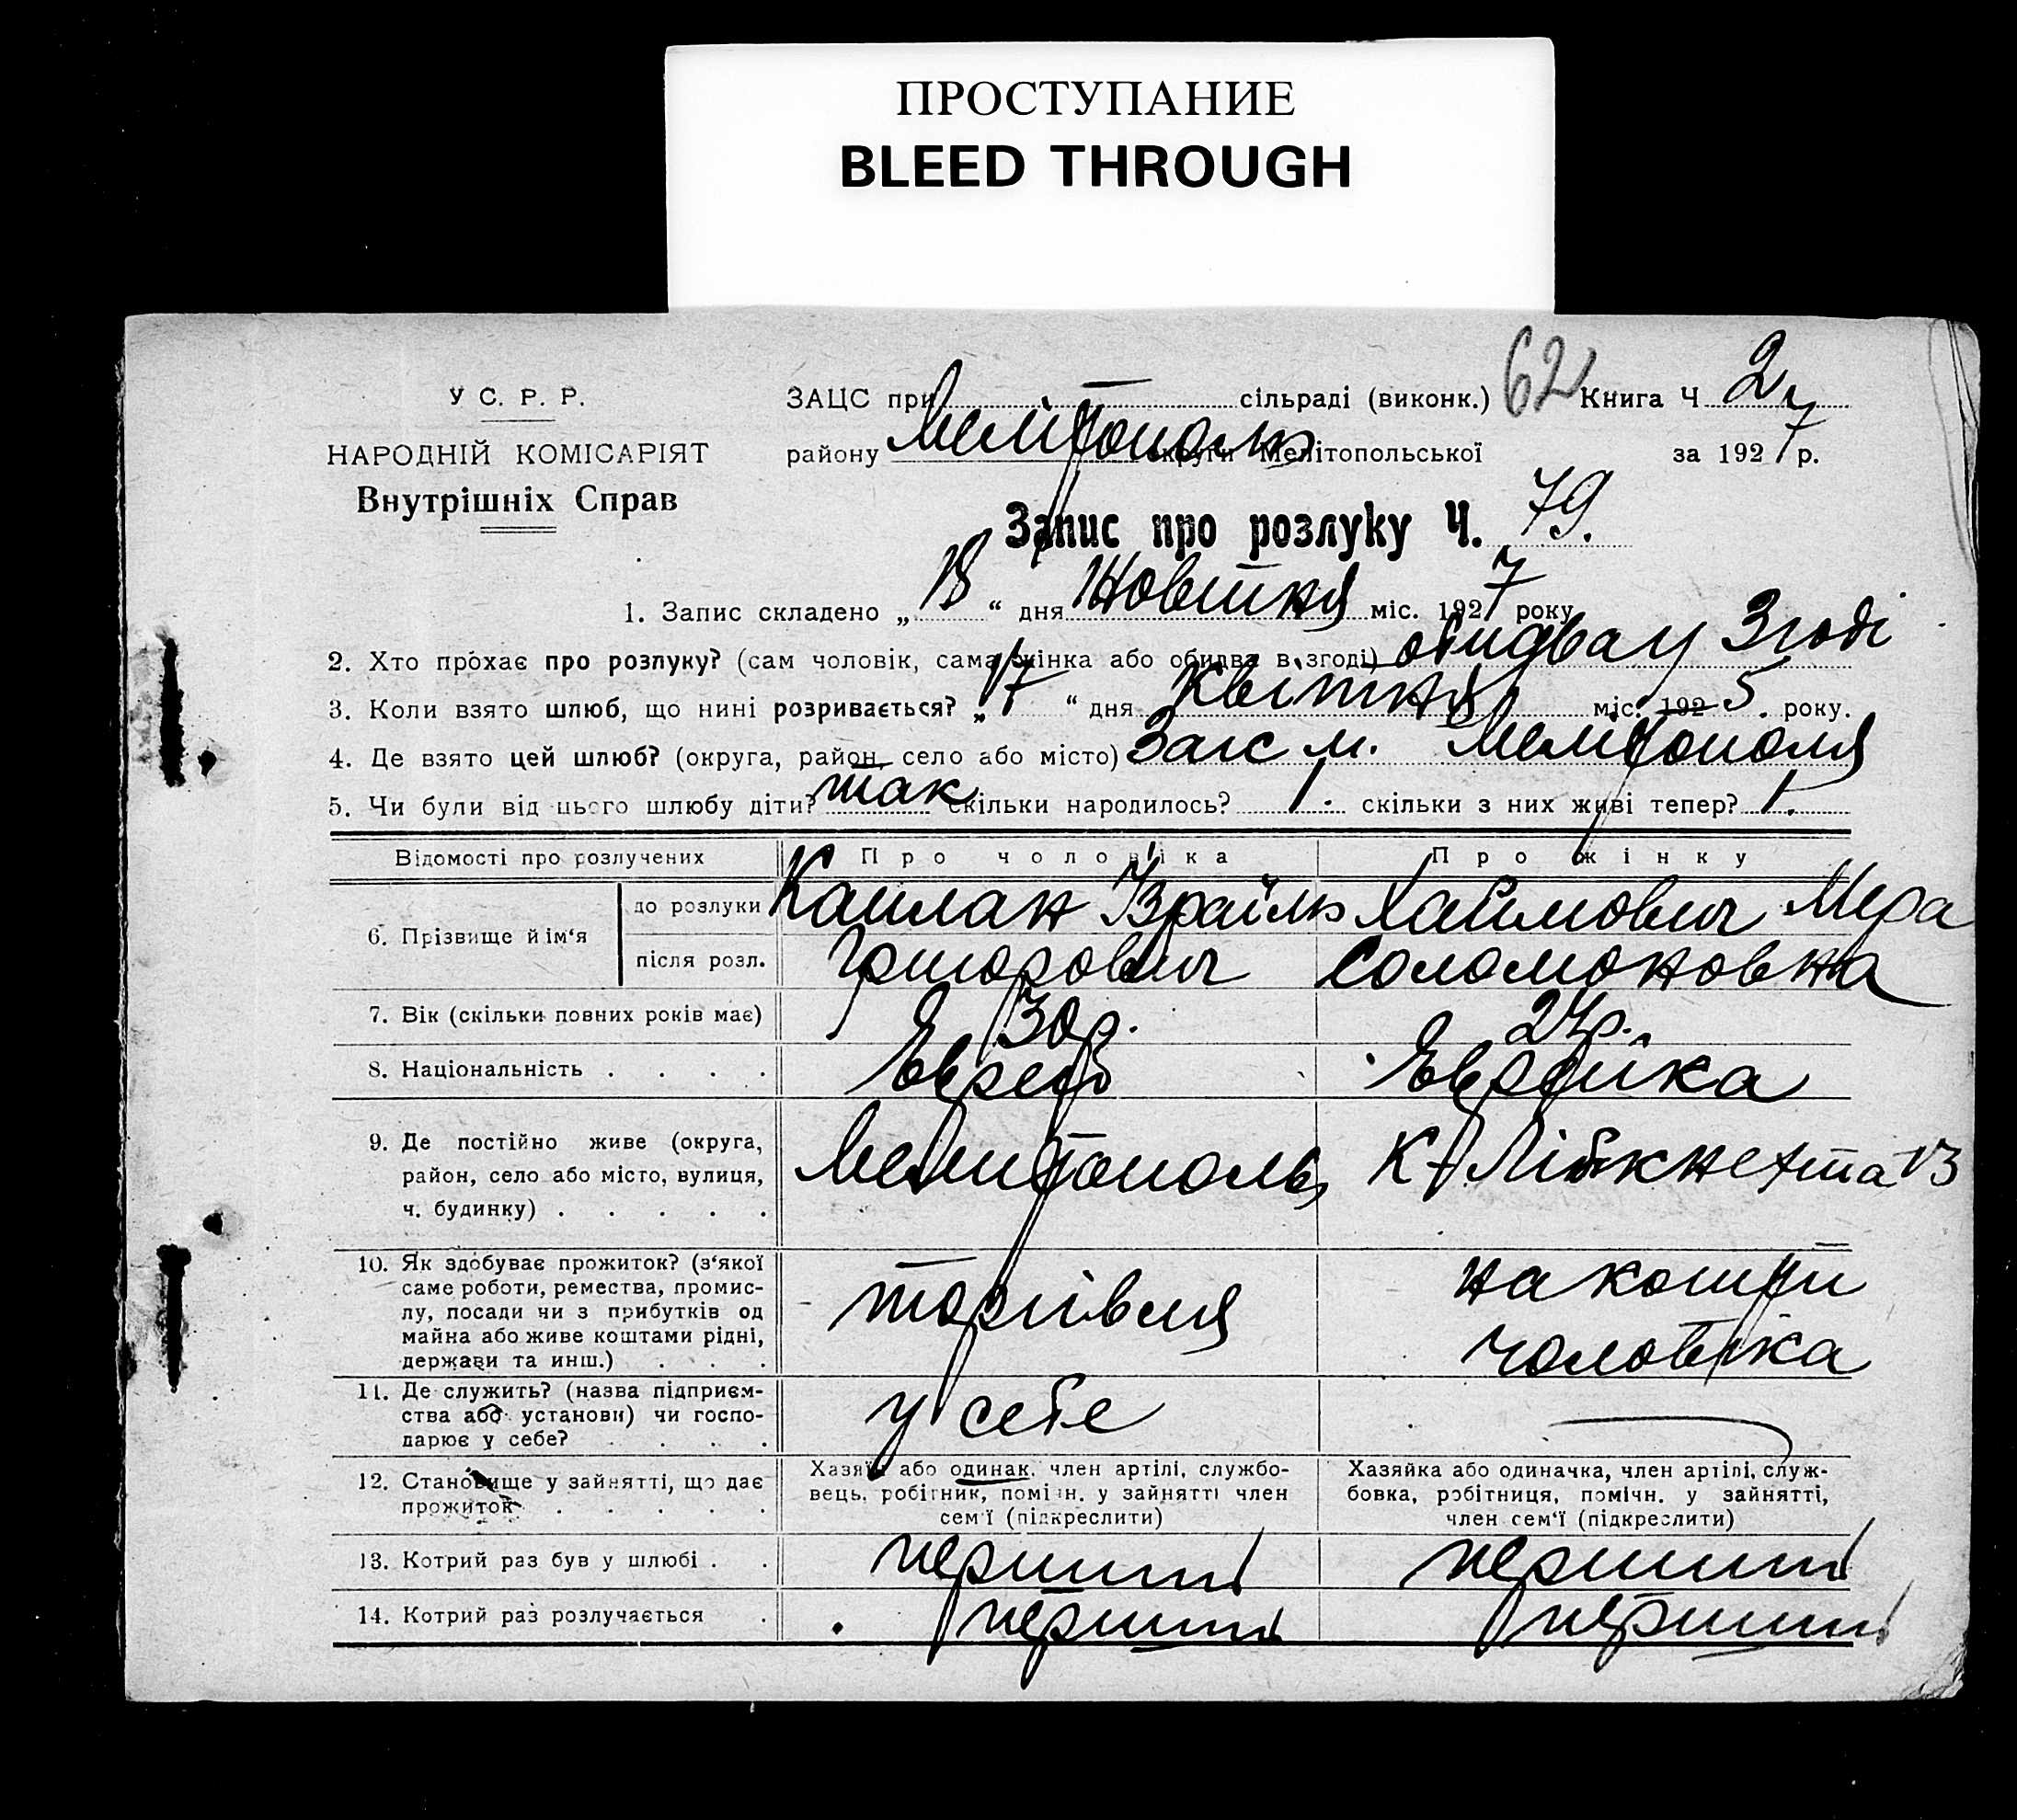 ПРОСТУПАНИЕ
BLEED THROUGH
У С. Р. Р.
НАРОДНІЙ КОМІСАРІЯТ
Внутрішніх Справ
ЗАЦС при сільраді (виконк.) 62 Книга Ч 2
району Мелітополь округи Мелітопольської за 1927 р.
Запис про розлуку Ч. 79.
1. Запис складено „18“ дня Жовтня міс. 1927 року
2. Хто прохає про розлуку? (сам чоловік, сама жінка або обидва в згоді) обидва у Згоді
3. Коли взято шлюб, що нині розривається? „17“ дня Квітня міс. 1925. року.
4. Де взято цей шлюб? (округа, район, село або місто) Загс м. Мелітополя
5. Чи були від цього шлюбу діти? так скільки народилось? 1. скільки з них живі тепер? 1.
Відомості про розлучених Про чоловіка Про жінку
6. Прізвище й ім‘я
до розлуки Каплан Ізраїль Хаймович Мера
після розл. Григорович Соломоновна
7. Вік (скільки повних років має) 30 р. 24 р.
8. Національність . . . . Єврей Єврейка
9. Де постійно живе (округа,
район, село або місто, вулиця,
ч. будинку) . . . . .
Мелитополь, К. Лібкнехта 13
10. Як здобуває прожиток? (з‘якої
саме роботи, ремества, промис-
лу, посади чи з прибутків од
майна або живе коштами рідні,
держави та инш.) . . .
торгівля
на кошти
чоловіка
11. Де служить? (назва підприєм-
ства або установи) чи госпо-
дарює у себе? . . . .
у себе
12. Становище у зайнятті, що дає
прожиток . . . . .
Хазяїн або одинак, член артілі, службо-
вець, робітник, помічн. у зайнятті член
сем‘ї (підкреслити)
Хазяйка або одиначка, член артілі, служ-
бовка, робітниця, помічн. у зайнятті,
член сем‘ї (підкреслити)
13. Котрий раз був у шлюбі . . перший перший
14. Котрий раз розлучається . перший перший